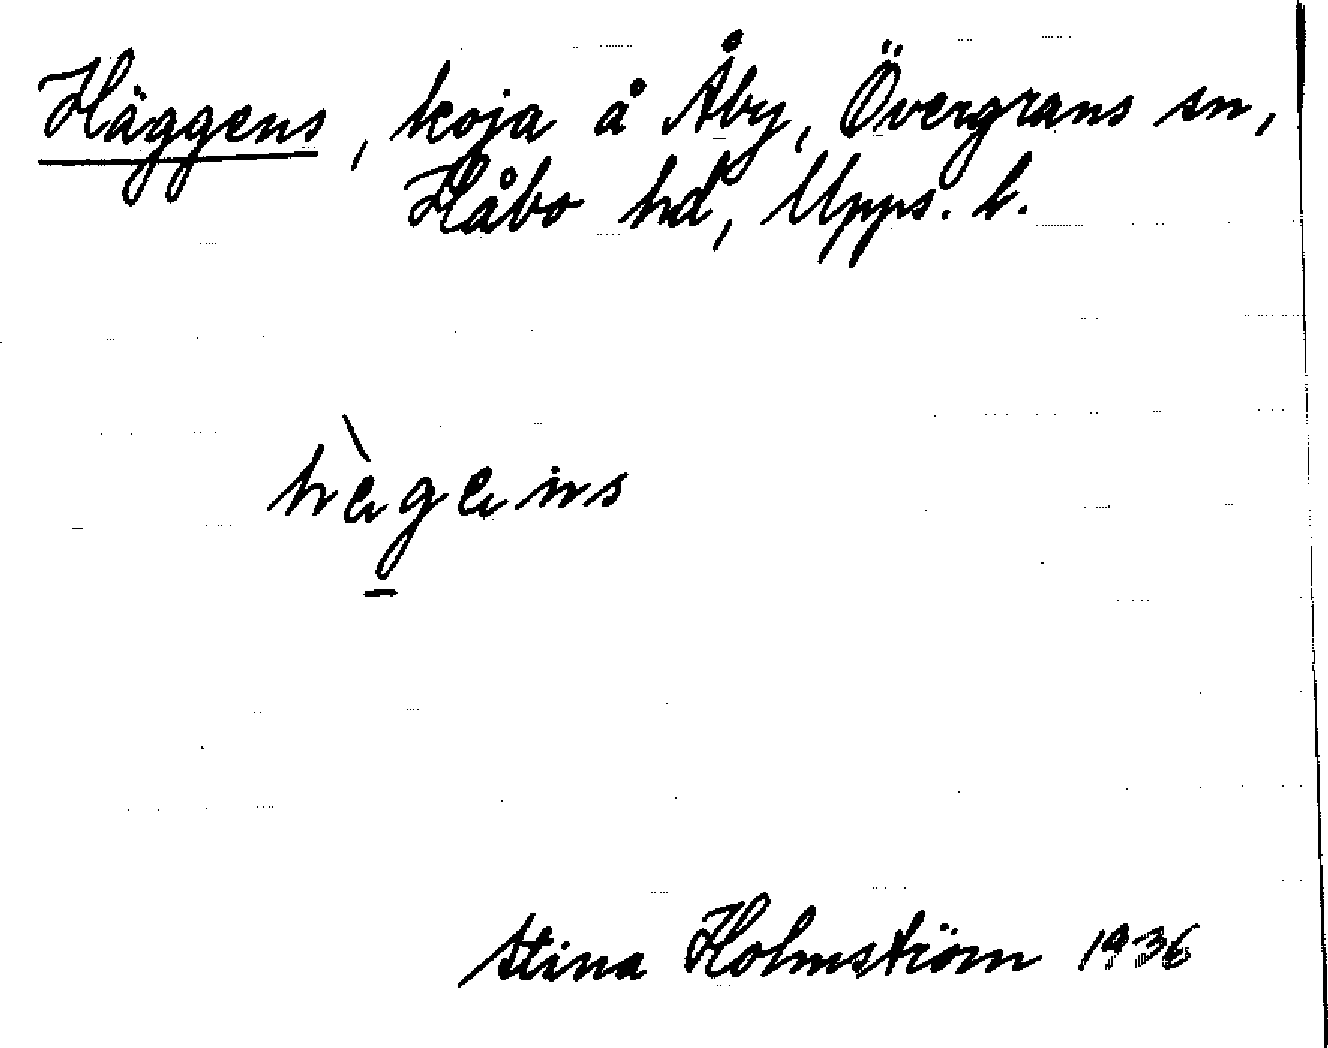 Häggens, koja å Åby, Övergrans sn,
Håbo hd, Upps. l.
hègens
Stina Holmström 1936